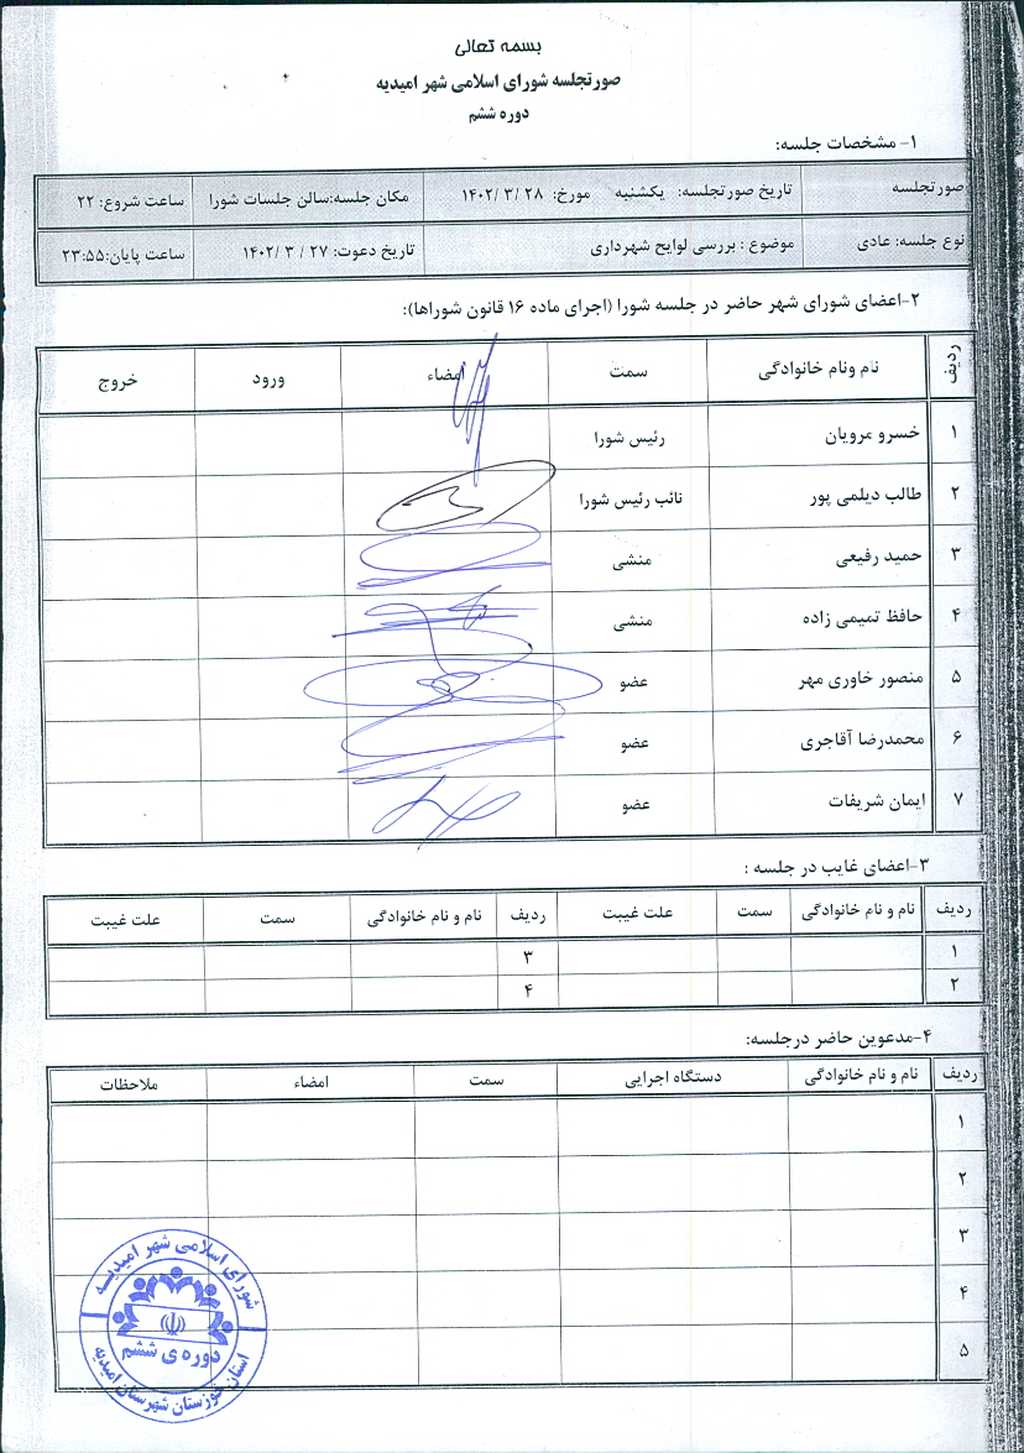 بسمه تعالی
صورتجلسه شورای اسلامی شهر امیدیه
دوره ششم
۱- مشخصات جلسه:
صورتجلسه تاریخ صورتجلسه: یکشنبه مورخ: ۲۸ /۳ /۱۴۰۲ مکان جلسه:سالن جلسات شورا ساعت شروع: ۲۲
نوع جلسه: عادی موضوع : بررسی لوایح شهرداری تاریخ دعوت: ۲۷ / ۳ /۱۴۰۲ ساعت پایان:۲۳:۵۵
۲-اعضای شورای شهر حاضر در جلسه شورا (اجرای ماده ۱۶ قانون شوراها):
ردیف نام ونام خانوادگی سمت امضاء ورود خروج
۱ خسرو مرویان رئیس شورا
۲ طالب دیلمی پور نائب رئیس شورا
۳ حمید رفیعی منشی
۴ حافظ تمیمی زاده منشی
۵ منصور خاوری مهر عضو
۶ محمدرضا آقاجری عضو
۷ ایمان شریفات عضو
۳-اعضای غایب در جلسه :
ردیف نام و نام خانوادگی سمت علت غیبت ردیف نام و نام خانوادگی سمت علت غیبت
۱ ۳
۲ ۴
۴-مدعوین حاضر درجلسه:
ردیف نام و نام خانوادگی دستگاه اجرایی سمت امضاء ملاحظات
۱
۲
۳
۴
۵
شورای اسلامی شهر امیدیه
دوره ی ششم
استان خوزستان شهرستان امیدیه